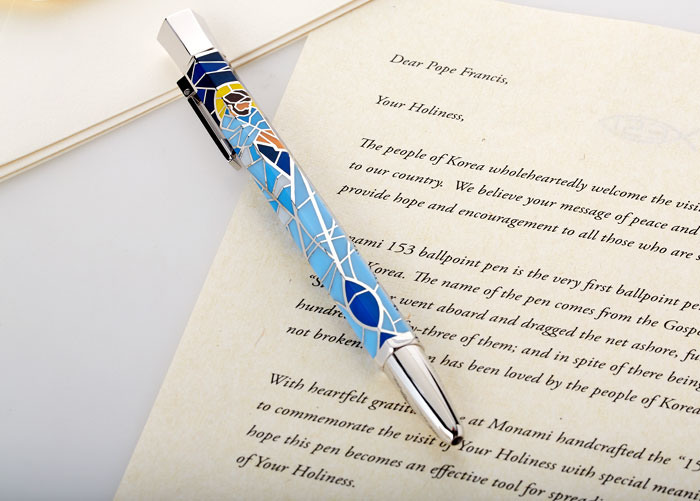 Dear Pope Francis,
Your Holiness,
The people of Korea wholeheartedly welcome the visi
to our country. We believe your message of peace and
provide hope and encouragement to all those who are s
nami 153 ballpoint pen is the very first ballpoint pe
Korea. The name of the pen comes from the Gospe
went aboard and dragged the net ashore, fu
hundre y-three of them; and in spite of there being
not broken. n has been loved by the people of Korea
With heartfelt gratit e at Monami handcrafted the "15
to commemorate the visit of Your Holiness with special mean
hope this pen becomes an effective tool for spread
of Your Holiness.